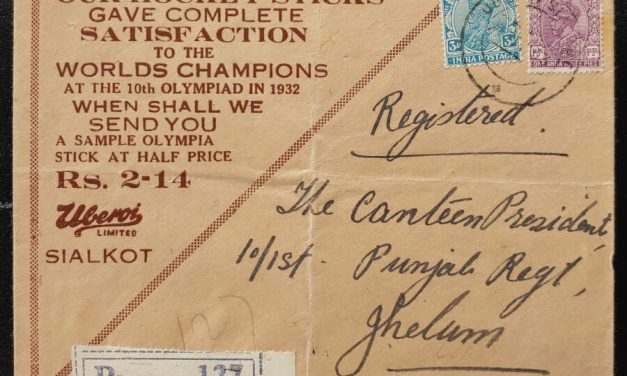 OUR HOCKEY STICKS
GAVE COMPLETE
SATISFACTION
TO THE
WORLDS CHAMPIONS
AT THE 10th OLYMPIAD IN 1932
WHEN SHALL WE
SEND YOU
A SAMPLE OLYMPIA
STICK AT HALF PRICE
Rs. 2-14
Uberoi
LIMITED
SIALKOT
3P 3P
INDIA POSTAGE
Registered.
The Canteen President,
10/1st. Punjab Regt,
Jhelum
127
127